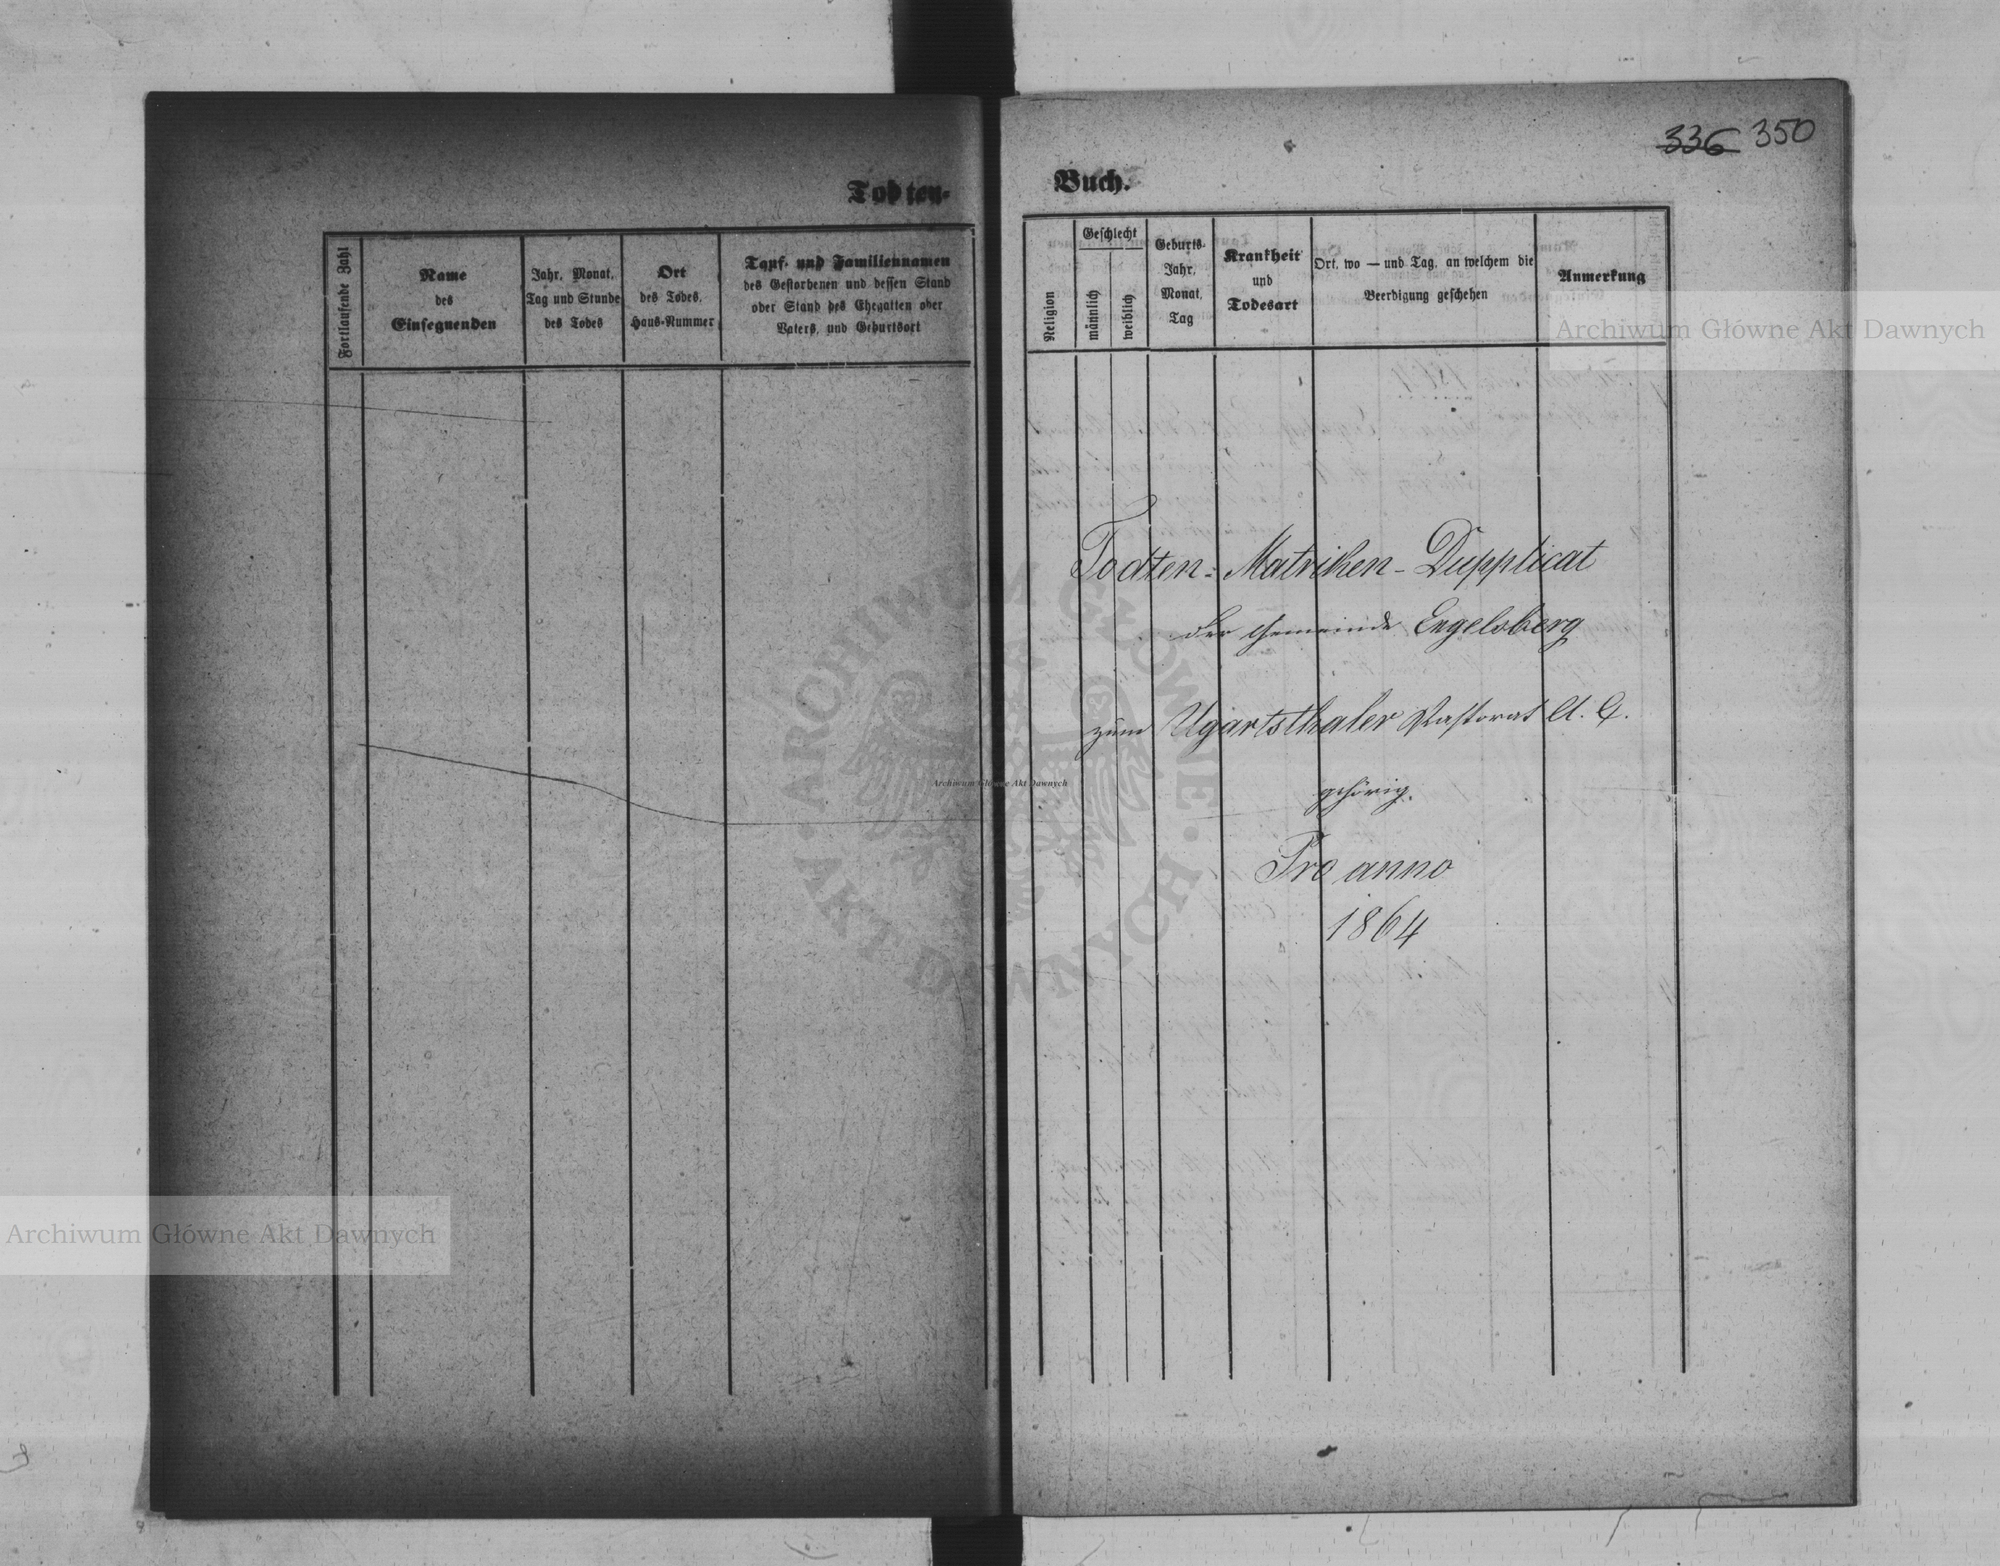 336 350
Todten-
Fortlaufende Zahl
Name
des
Einsegnenden
Jahr, Monat,
Tag und Stunde
des Todes
Ort
des Todes,
Haus-Nummer
Tauf- und Familiennamen
des Gestorbenen und dessen Stand
oder Stand des Ehegatten oder
Vaters, und Geburtsort
Buch.
Religion
Geschlecht
männlich
weiblich
Geburts-
Jahr,
Monat,
Tag
Krankheit
und
Todesart
Ort, wo — und Tag, an welchem die
Beerdigung geschehen
Anmerkung
Todten-Matriken-Dupplicat
der Gemeinde Engelsberg
zum Ugartsthaler Pastorat A. C.
gehörig.
Pro anno
1864
Archiwum Główne Akt Dawnych
Archiwum Główne Akt Dawnych
Archiwum Główne Akt Dawnych
ARCHIWUM GŁÓWNE
AKT DAWNYCH